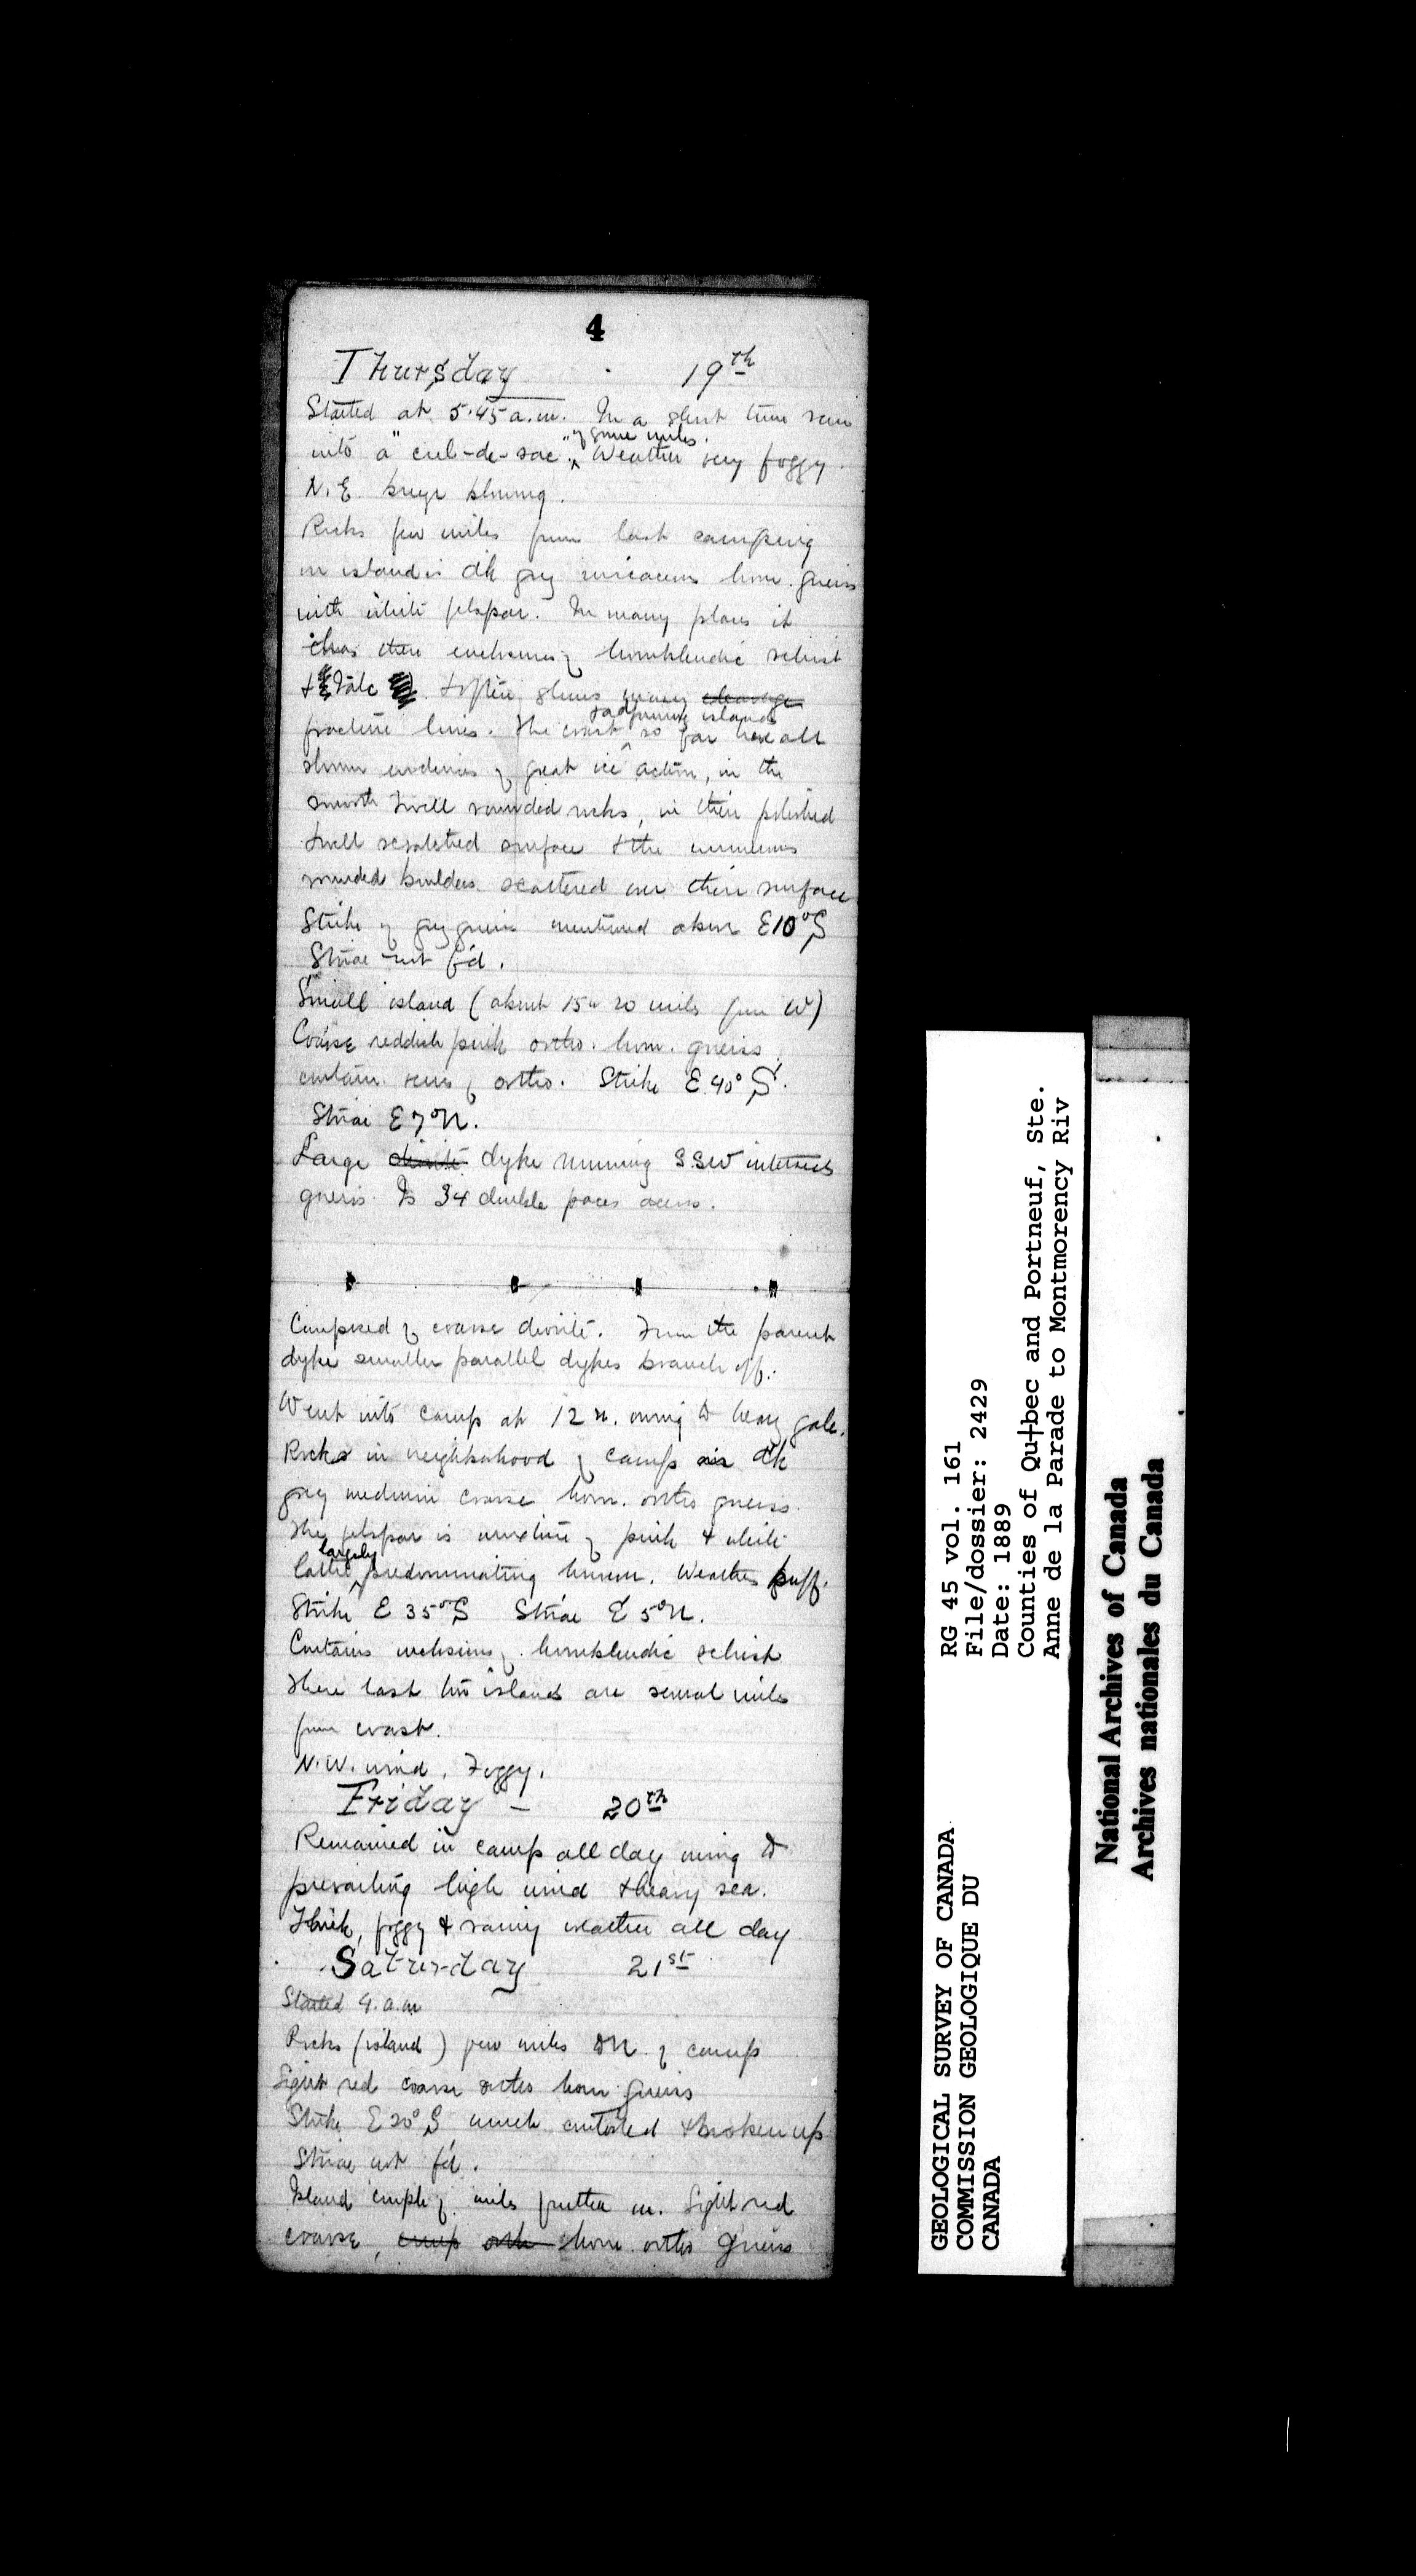 4
Thursday 19th
Started at 5.45 a.m. In a short time ran
into a "cul-de-sac" of some miles. Weather very foggy
N.E. breeze blowing.
Rocks few miles from last camping
on island is dk grey micaceous horn. gneiss
with white felspar. In many places it
has inclusions of hornblendic schist
& talc. & often shows many cleavage
fracture lines. The coast & adjoining islands so far have all
shown evidences of great ice action, in the
smooth & well rounded rocks, in their polished
& well scratched surface & the numerous
rounded boulders scattered over their surface
Strike of grey gneiss mentioned above E10°S
Striae not f'd.
Small island (about 15 or 20 miles from W)
Coarse reddish pink ortho. horn. gneiss.
contain veins of ortho. Strike E 40° S.
Striae E7°N.
Large diorite dyke running S.S.W intersects
gneiss. Is 34 double paces across.
Composed of coarse diorite. From the parent
dyke smaller parallel dykes branch off.
Went into camp at 12 n. owing to heavy gale.
Rocks in neighborhood of camp is dk
grey medium coarse horn. ortho gneiss.
The felspar is mixture of pink & white
latter largely predominating however. Weathers buff.
Strike E 35°S Striae E 5°N.
Contains inclusions of hornblendic schist
These last two islands are several miles
from coast.
N.W. wind. Foggy.
Friday - 20th
Remained in camp all day owing to
prevailing high wind & heavy sea.
Thick, foggy & rainy weather all day
Saturday 21st
Started 4. a.m
Rocks (island) few miles to N. of camp
Light red coarse ortho horn gneiss
Strike E 20° S much contorted & broken up
Striae not f'd.
Island couple of miles further on. Light red
coarse, camp orth horn. ortho gneiss
GEOLOGICAL SURVEY OF CANADA
COMMISSION GEOLOGIQUE DU
CANADA
RG 45 vol. 161
File/dossier: 2429
Date: 1889
Counties of Qu†bec and Portneuf, Ste.
Anne de la Parade to Montmorency Riv
National Archives of Canada
Archives nationales du Canada